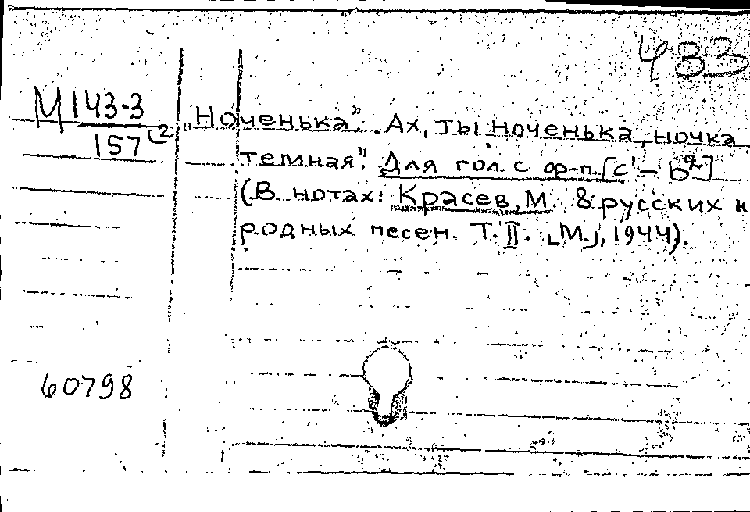 483
М143-3
157
"Ноченька". "Ах, ты ноченька, ночка
темная". Для гол. с фр-п. [c¹ – b²]
(В нотах: Красев, М. 8 русских н
родных песен. Т. II. [М.], 1944).
60798